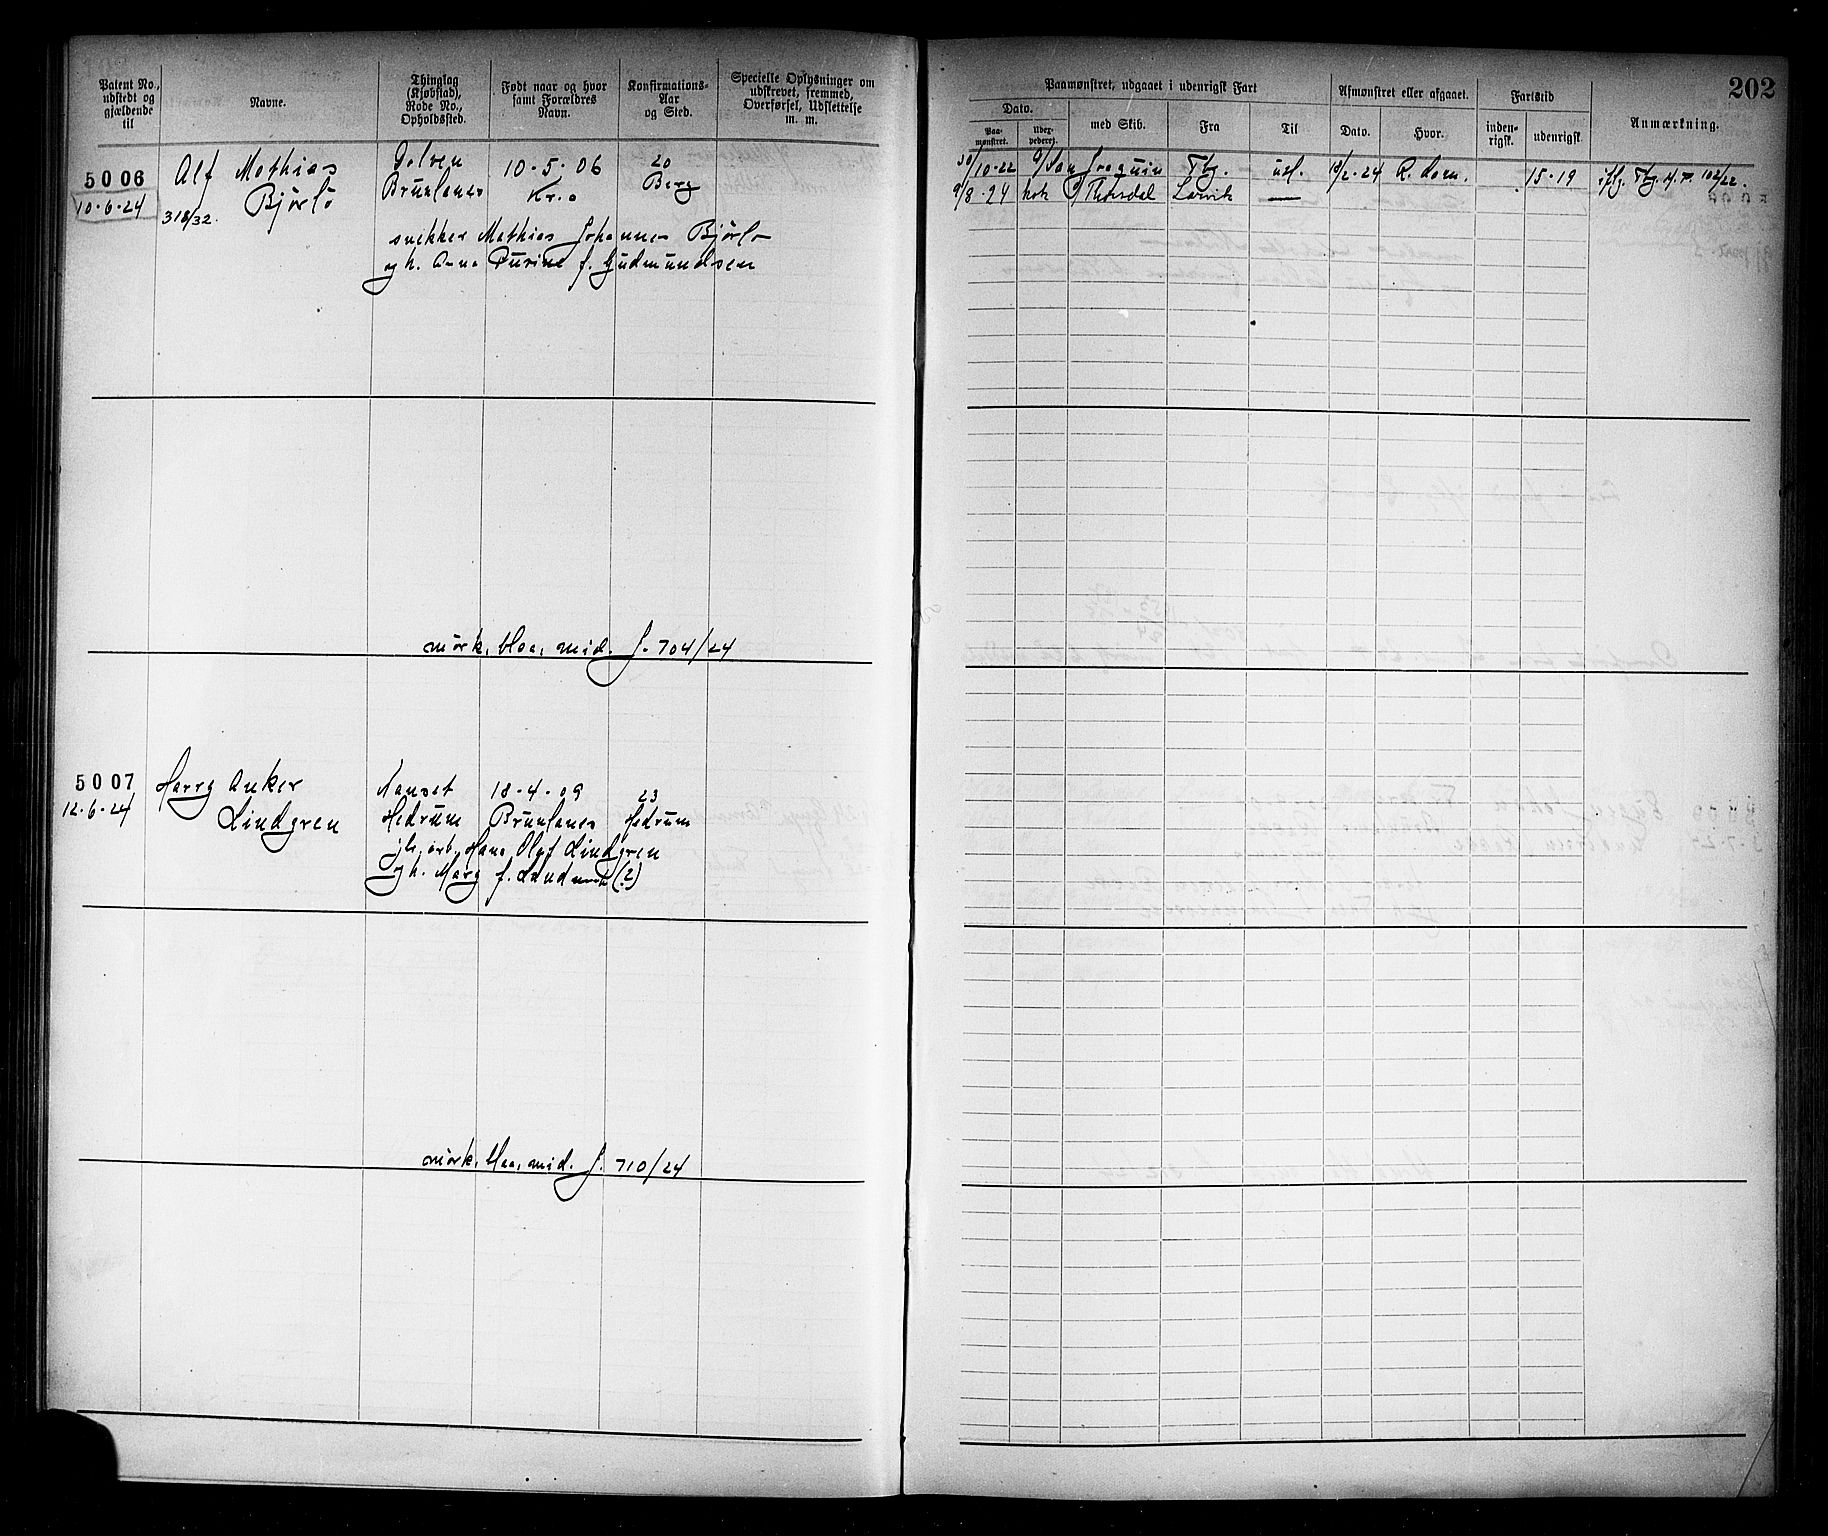 Patent No., udstedt og gjældende til
Navne.
Thinglag (Kjøbstad), Rode No., Opholdssted.
Født naar og hvor samt Forældres Navn.
Konfirmations-Aar og Sted.
Specielle Oplysninger om udskrevet, fremmed, Overførsel, Udslettelse m. m.
5006
10-6-24
318/32.
Alf Mathias
Bjørlo
Brunlanes
10-5-06
Kr.a
20
Berg
snekker Mathias Johannes Bjørlo
og h. Anna Turine f. Gudmundsen
mørk, blaa, mid. J. 704/24
5007
12-6-24
Harry Anker
Lindgren
Nanset
Hedrum
18-4-09
Brunlanes
23
Hedrum
jb. arb. Hans Olaf Lindgren
og h. Marg f. (?)
mørk, blaa, mid. J. 710/24
202
Paamønstret, udgaaet i udenrigsk Fart
Afmønstret eller afgaaet.
Fartstid
Anmærkning.
Dato.
Paa-mønstret.
Udex-pederet.
med Skib.
Fra
Til
Dato.
Hvor.
inden-rigsk.
udenrigsk.
30/10-22 San Joaquin Tbg. utl. 18/2-24 R. Dam. 15-19 iflg. Tbg. 102/22.
9/8-24 kok Thorsdal Larvik —